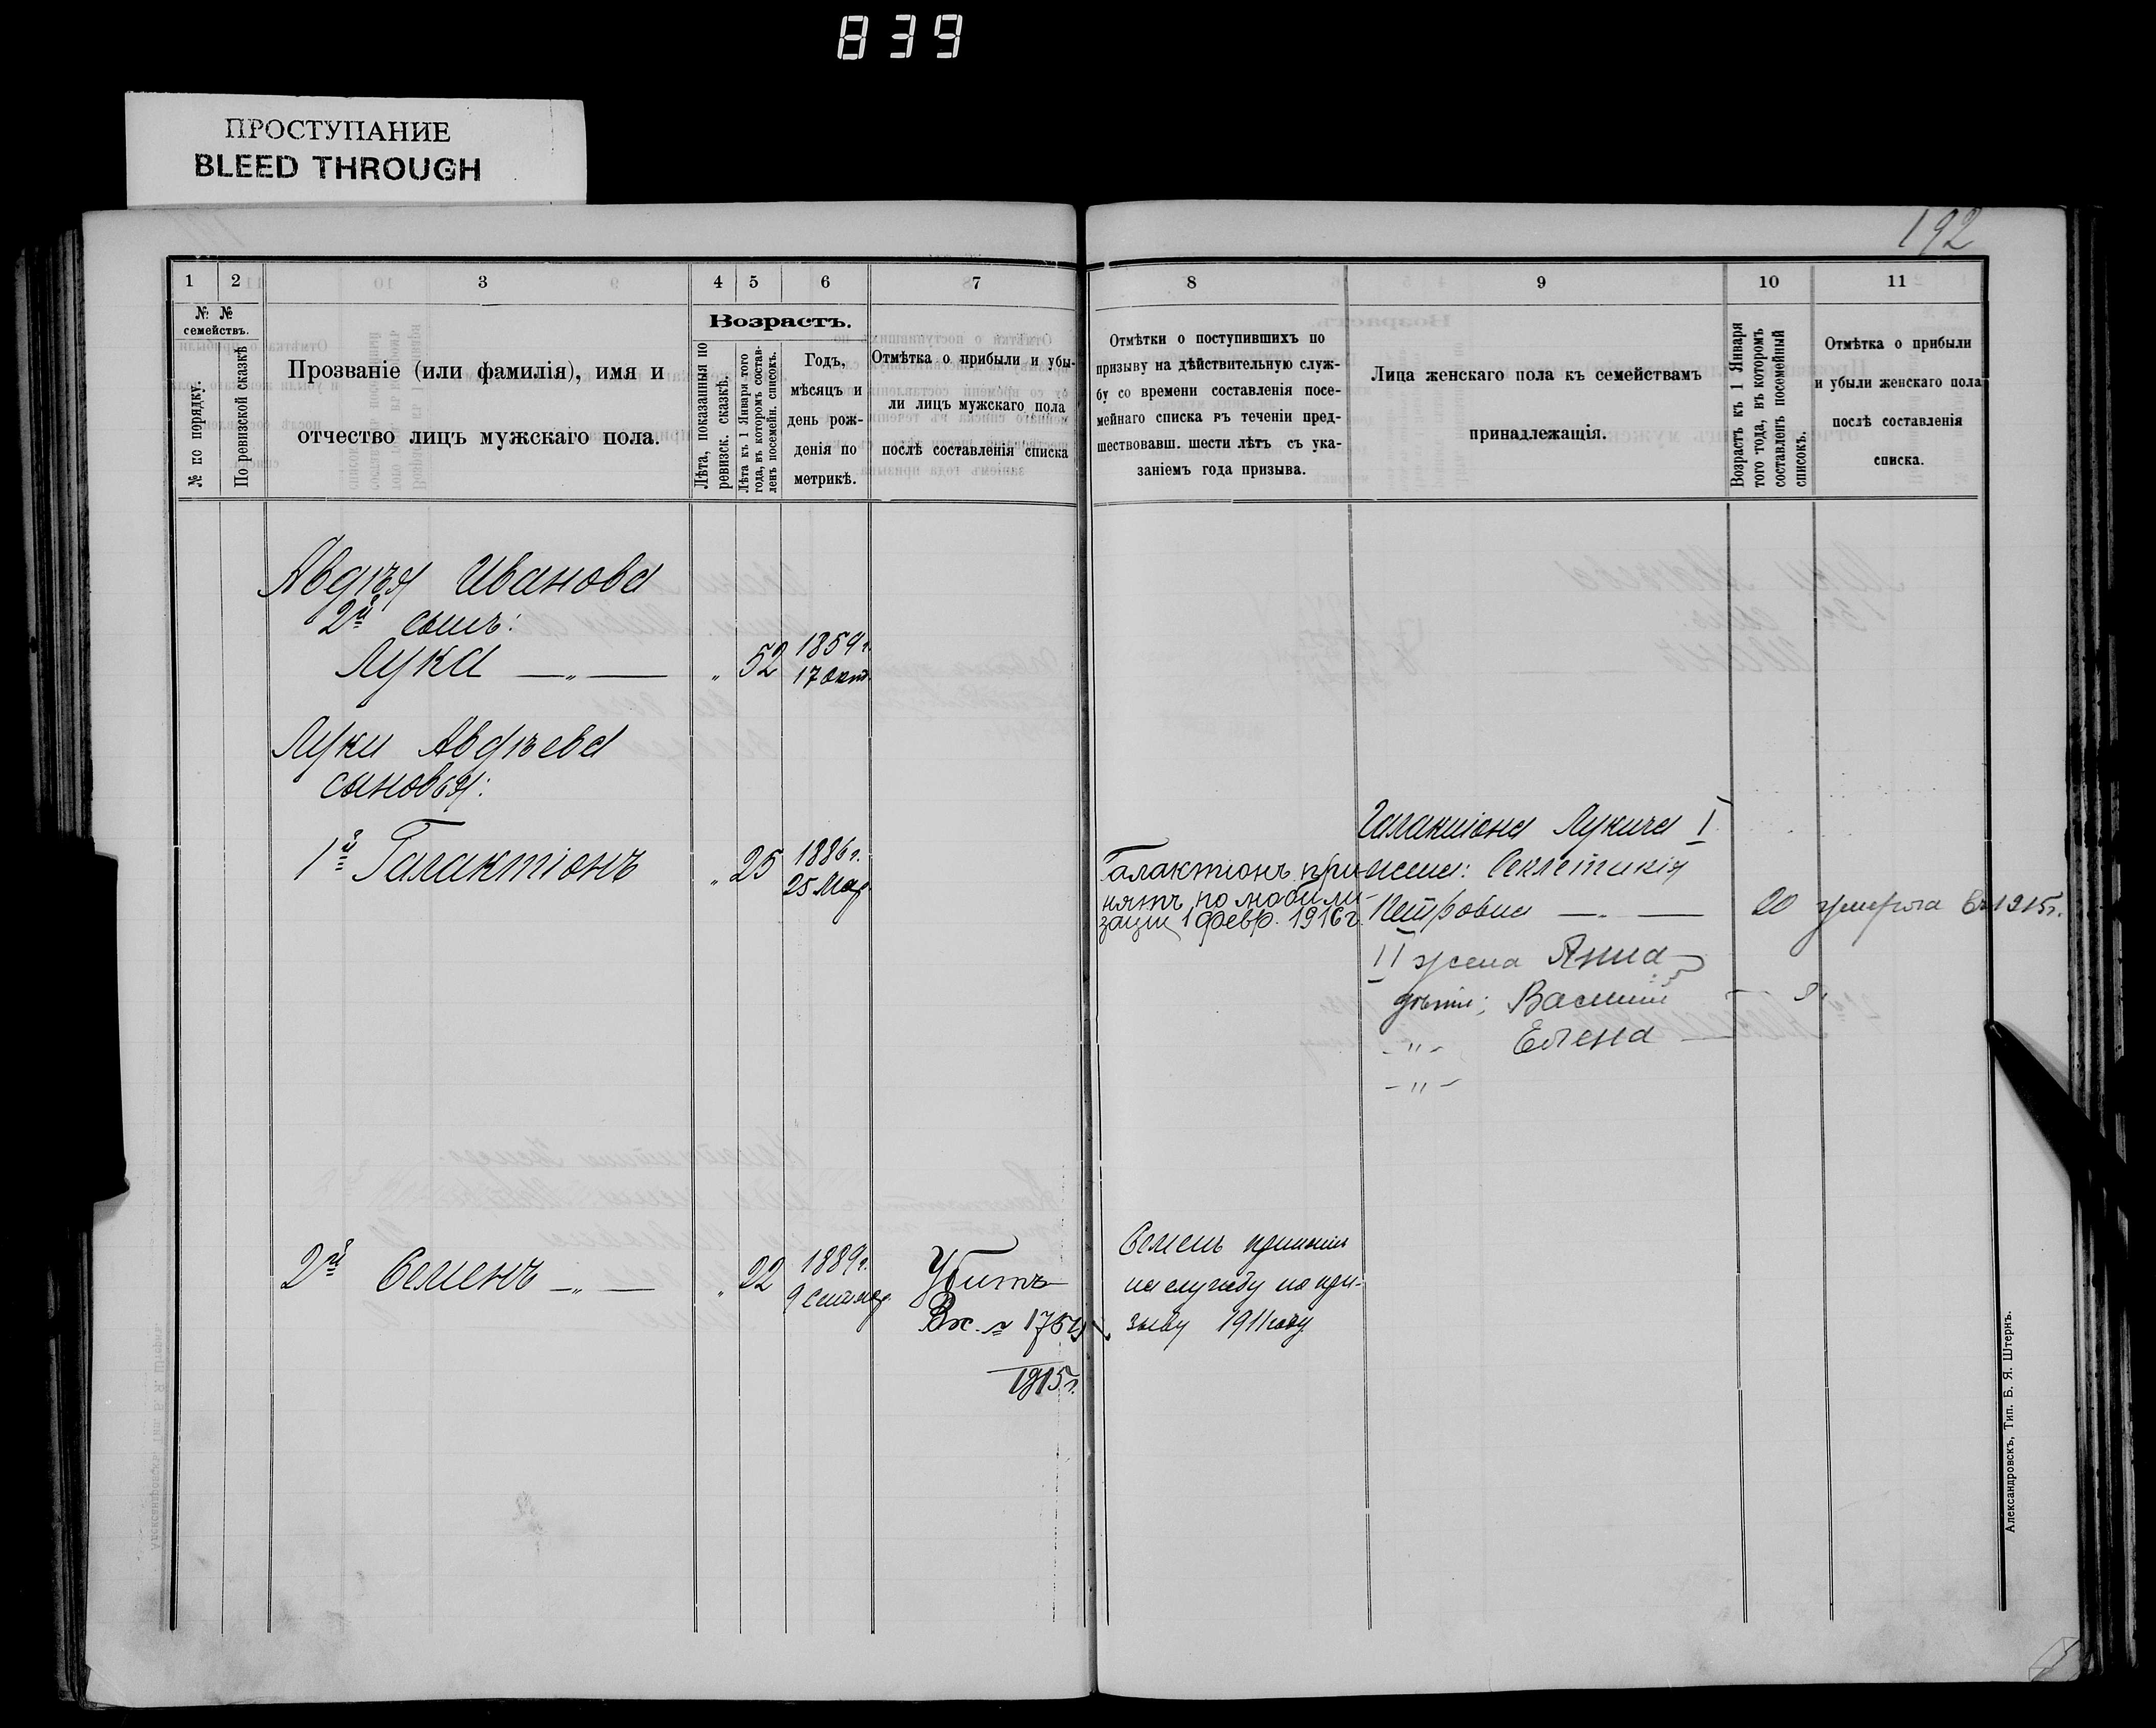 839
ПРОСТУПАНИЕ
BLEED THROUGH
192
1 2 3 4 5 6 7
№ № семействъ.
№ по порядку.
По ревизской сказкѣ
Прозваніе (или фамилія), имя и
отчество лицъ мужскаго пола.
Возрастъ.
Лѣта, показанныя по
ревизск. сказкѣ.
Лѣта къ 1 Января того
года, въ которомъ состав-
ленъ посемейн. списокъ.
Годъ,
мѣсяцъ и
день рож-
денія по
метрикѣ.
Отмѣтка о прибыли и убы-
ли лицъ мужскаго пола
послѣ составленія списка
Авдѣя Иванова
2й сынъ:
Лука — „ — „ 52 1859 г.
17 Окт.
Луки Авдѣева
сыновья:
1й Галактіонъ „ 25 1886 г.
25 Мар
2й Семенъ — „ — „ 22 1889 г.
9 Сентяб.
Убитъ
Вх. №
1915 г.
8 9 10 11
Отмѣтки о поступившихъ по
призыву на дѣйствительную служ-
бу со времени составленія посе-
мейнаго списка въ теченіи пред-
шествовавш. шести лѣтъ съ ука-
заніемъ года призыва.
Лица женскаго пола къ семействамъ
принадлежащія.
Возрастъ къ 1 Января
того года, въ которомъ
составленъ посемейный
списокъ.
Отмѣтка о прибыли
и убыли женскаго пола
послѣ составленія
списка.
Галактіонъ при-
нятъ по мобили-
заціи 1 февр. 1916 г.
Галактіона Лукича I
жена: Секлетикія
Петровна — „ — 20 умерла въ 1915 г.
II жена Анна
дѣти: Василий
— „ — Елена
— „ —
Семенъ принятъ
на службу по при-
зыву 1911 году
Александровскъ, Тип. Б. Я. Штернъ.